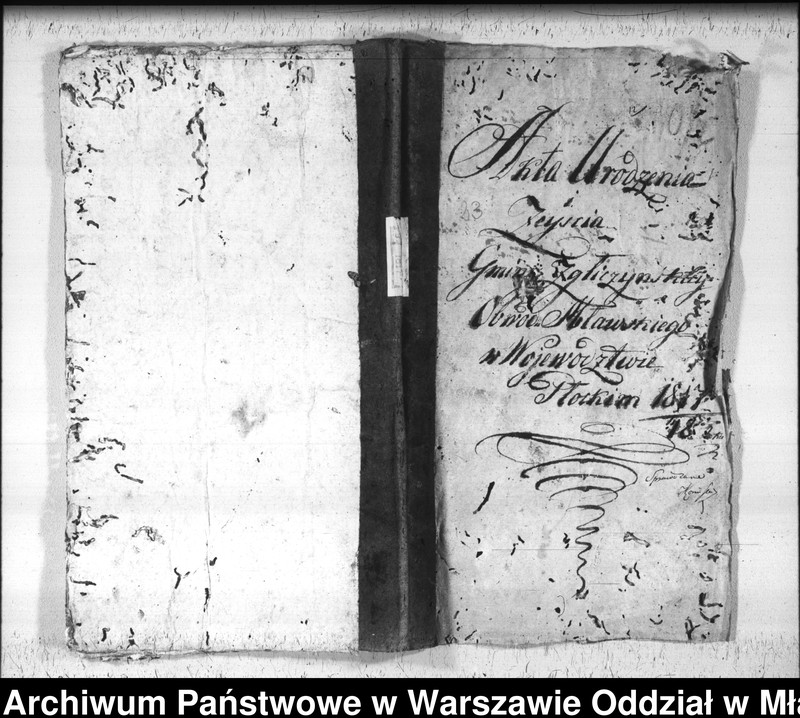 Akta Urodzenia
Zeyścia
Gminy Zgliczynskiey
Obwodu Mławskiego
w Wojewodztwie
Płockim 1817
Archiwum Państwowe w Warszawie Oddział w Mła